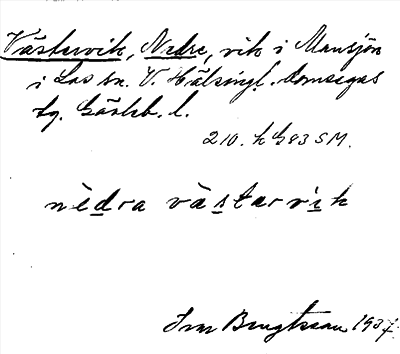 Västervik, Nedre, vik i Mansjön
i Los sn. V. Hälsingl. domsagas
tg. Gävleb. l.
210. h G83 SM.
nèdra vàstarvik
Ivar Bengtsson 1937.